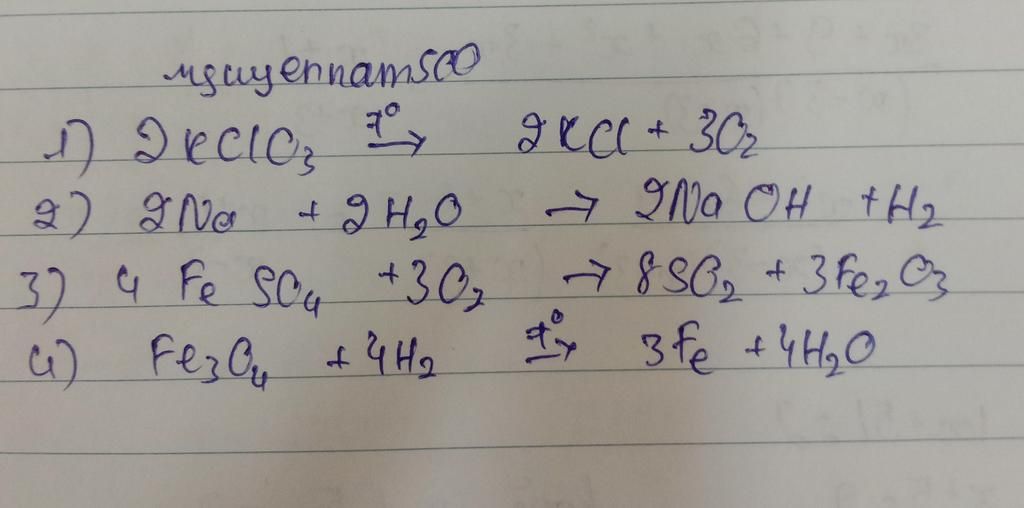 nguyennam500
1) 2KClO₃ t°→ 2KCl + 3O₂
2) 2Na + 2H₂O → 2NaOH + H₂
3) 4 FeSO₄ + 3O₂ → 8SO₂ + 3Fe₂O₃
4) Fe₃O₄ + 4H₂ t°→ 3Fe + 4H₂O